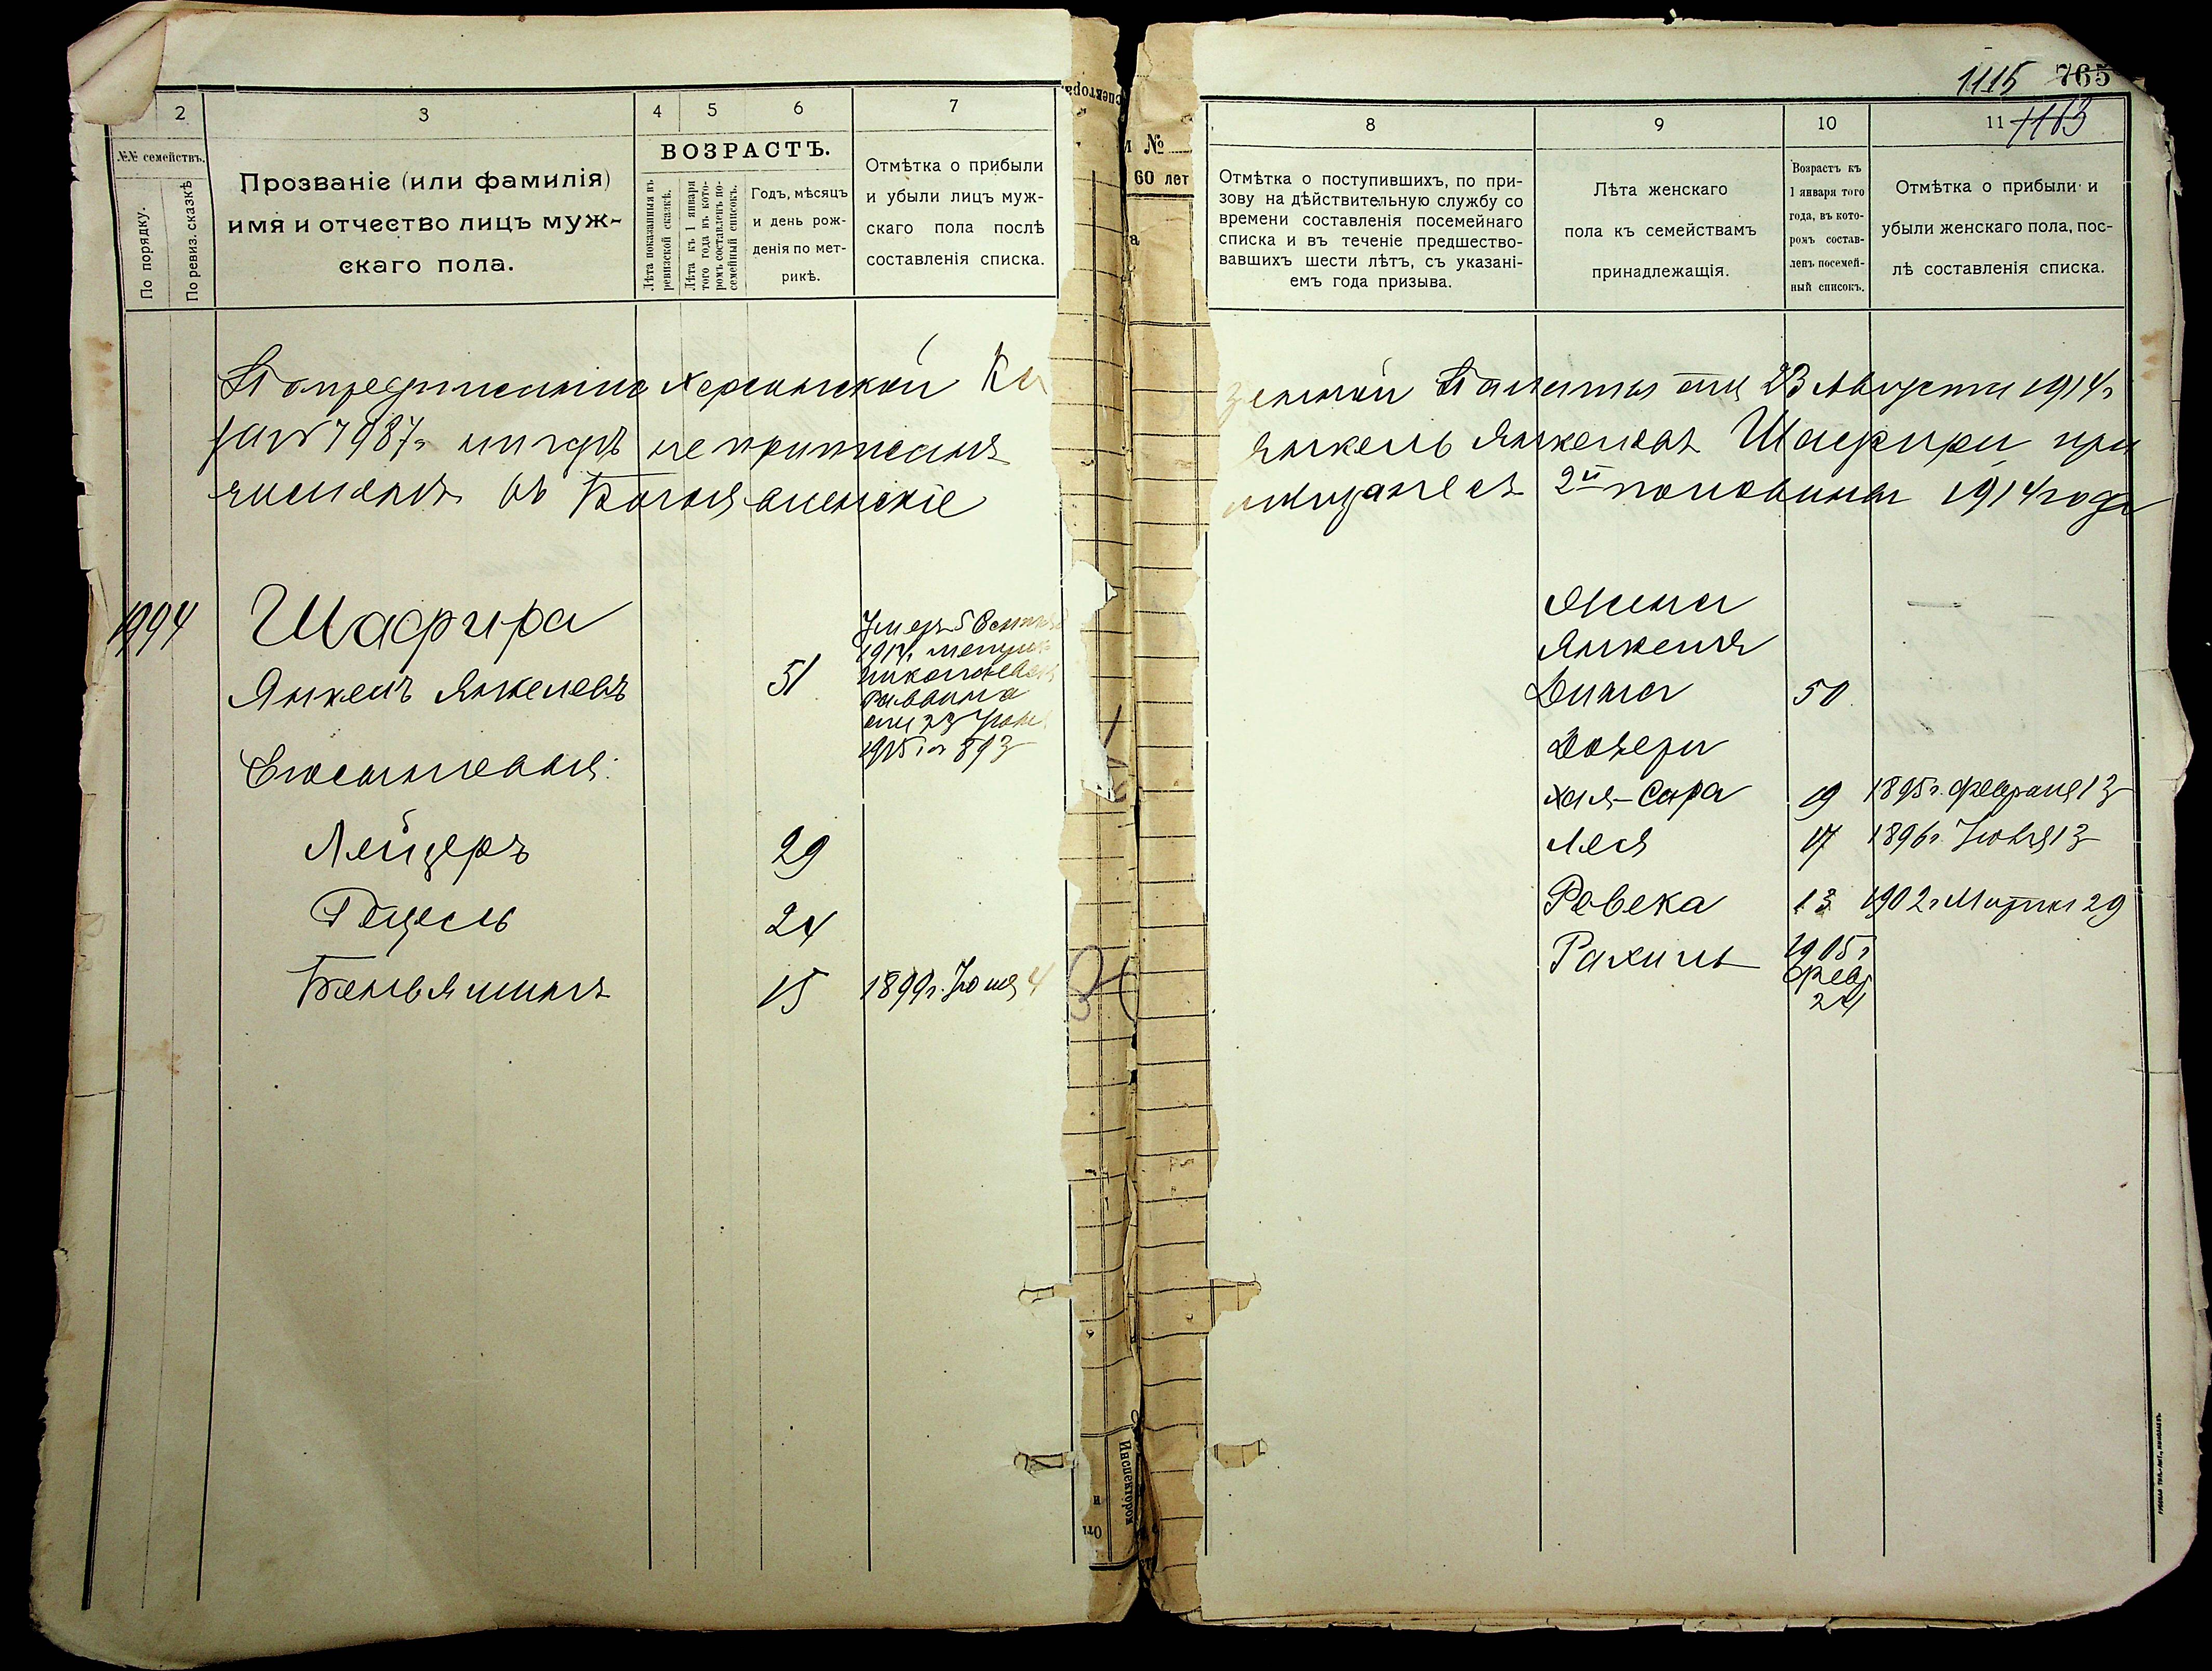 1115 765
1163
2 3 4 5 6 7
№№ семействъ.
По порядку.
По ревиз. сказкѣ
Прозваніе (или фамилія)
имя и отчество лицъ муж-
скаго пола.
ВОЗРАСТЪ.
Лѣта показанныя въ
ревизской сказкѣ.
Лѣта къ 1 января
того года въ кото-
ромъ составленъ по-
семейный списокъ.
Годъ, мѣсяцъ
и день рож-
денія по мет-
рикѣ.
Отмѣтка о прибыли
и убыли лицъ муж-
скаго пола послѣ
составленія списка.
№
60 лет
8 9 10 11
Отмѣтка о поступившихъ, по при-
зову на дѣйствительную службу со
времени составленія посемейнаго
списка и въ теченіе предшество-
вавшихъ шести лѣтъ, съ указані-
емъ года призыва.
Лѣта женскаго
пола къ семействамъ
принадлежащія.
Возрастъ къ
1 января того
года, въ кото-
ромъ состав-
ленъ посемей-
ный списокъ.
Отмѣтка о прибыли и
убыли женскаго пола, пос-
лѣ составленія списка.
По предписанію Херсонской Ка зенной Палаты отъ 23 Августа 1914 г
за № 7987 нигдѣ не приписанъ Янкель Янкелевъ Шафира при
численъ въ Богоявленскіе мѣщане съ 2й половины 1914 года
1994 Шафира
Янкель Янкелевъ 51
Умеръ 5
1914 г. метрик
Николаевск
Раввина
отъ 23
1915 г. № 893
Его сыновья:
Лейзеръ 29
Гецель 24
Беньяминъ 15 1899 г. Іюня 4
Жена
Янкеля
Дина 50
Дочери
Хая-Сара 19 1895 г. Февраля 13
Лея 17 1896 г. 13
Ревека 13 1902 г. Марта 29
Рахиль 1905 г
Фев
24
Инспекторов